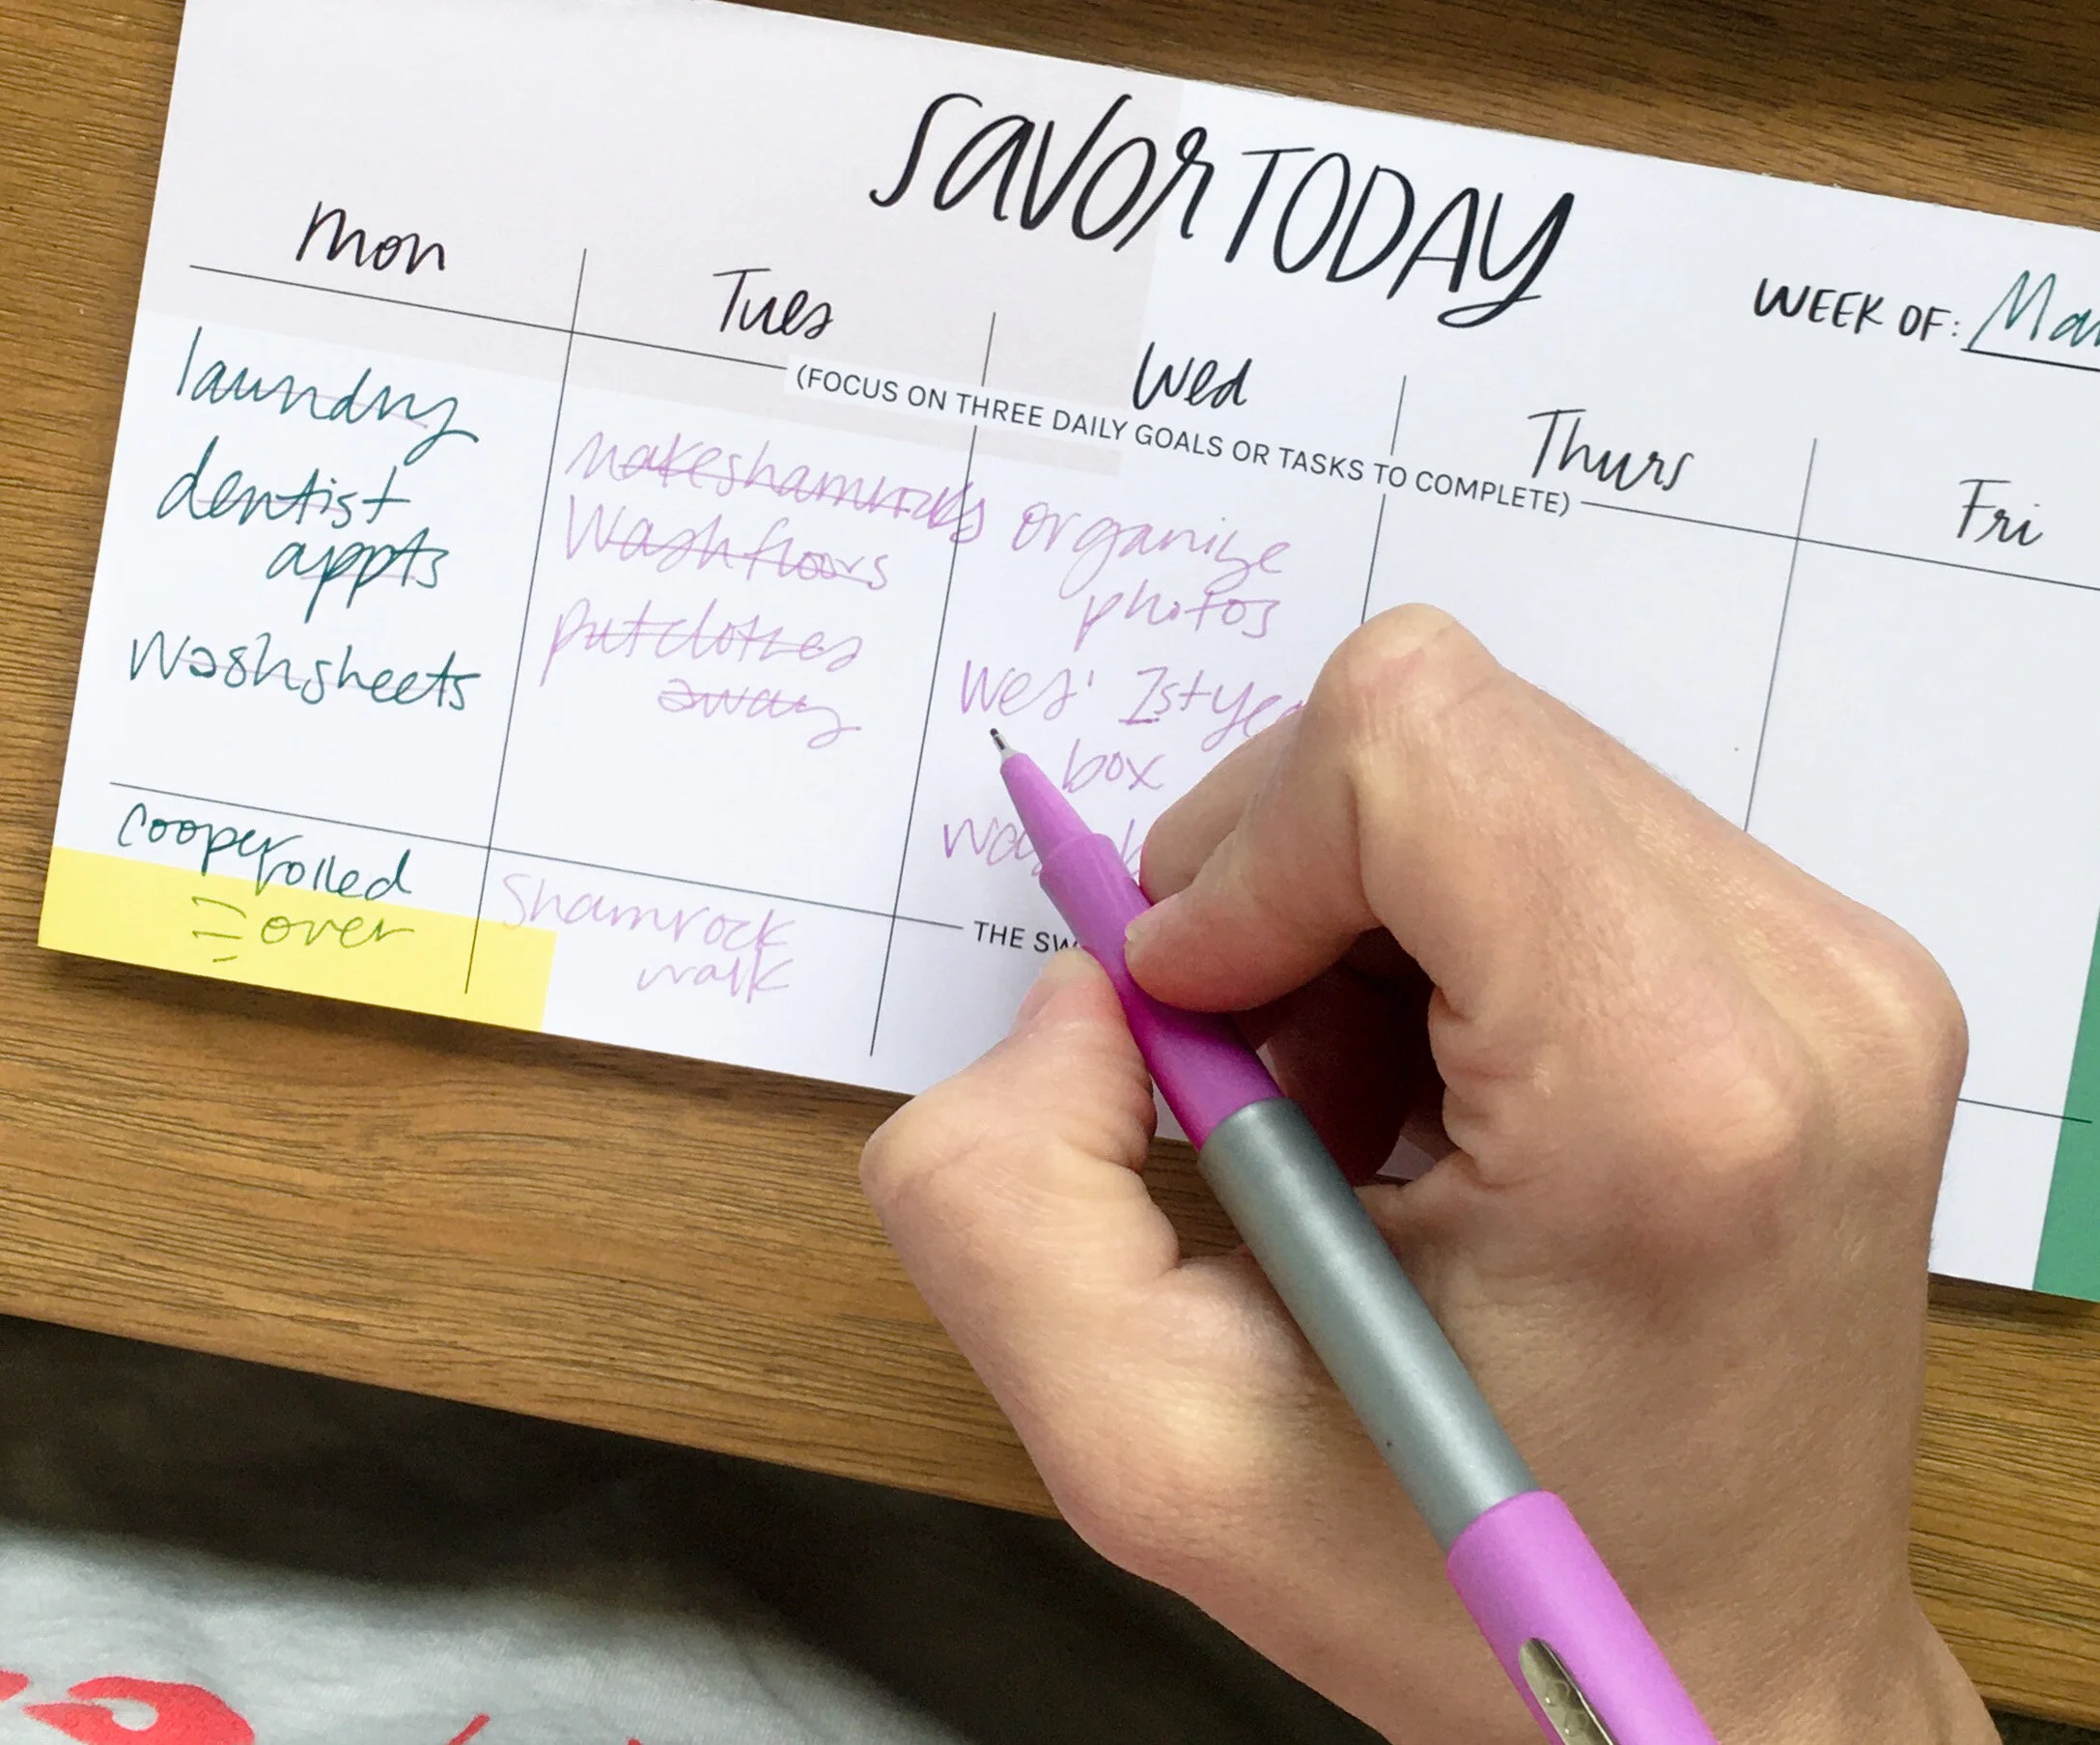 SAVOR TODAY
WEEK OF:
mon
Tues
Wed
Thurs
Fri
(FOCUS ON THREE DAILY GOALS OR TASKS TO COMPLETE)
laundry
dentist
appts
wash sheets
make shamrocks
wash floors
put clothes
away
organize
photos
Wes' 1st
box
cooper rolled
over
shamrock
walk
THE